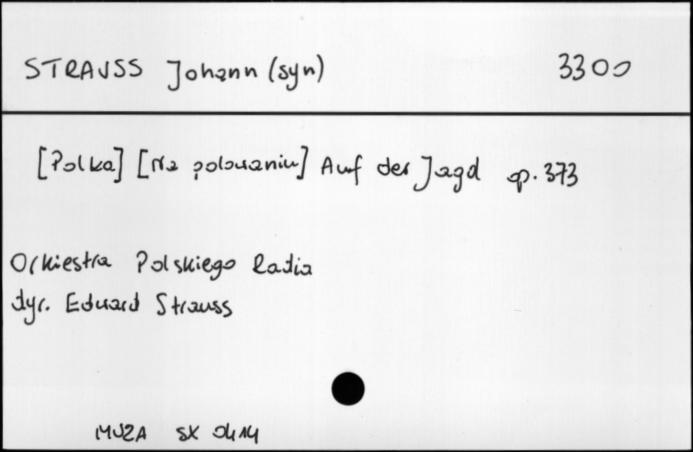 STRAUSS Johann (syn) 3300
[Polka] [Na polowaniu] Auf der Jagd op. 373
Orkiestra Polskiego Radia
dyr. Eduard Strauss
MUZA SX 0414